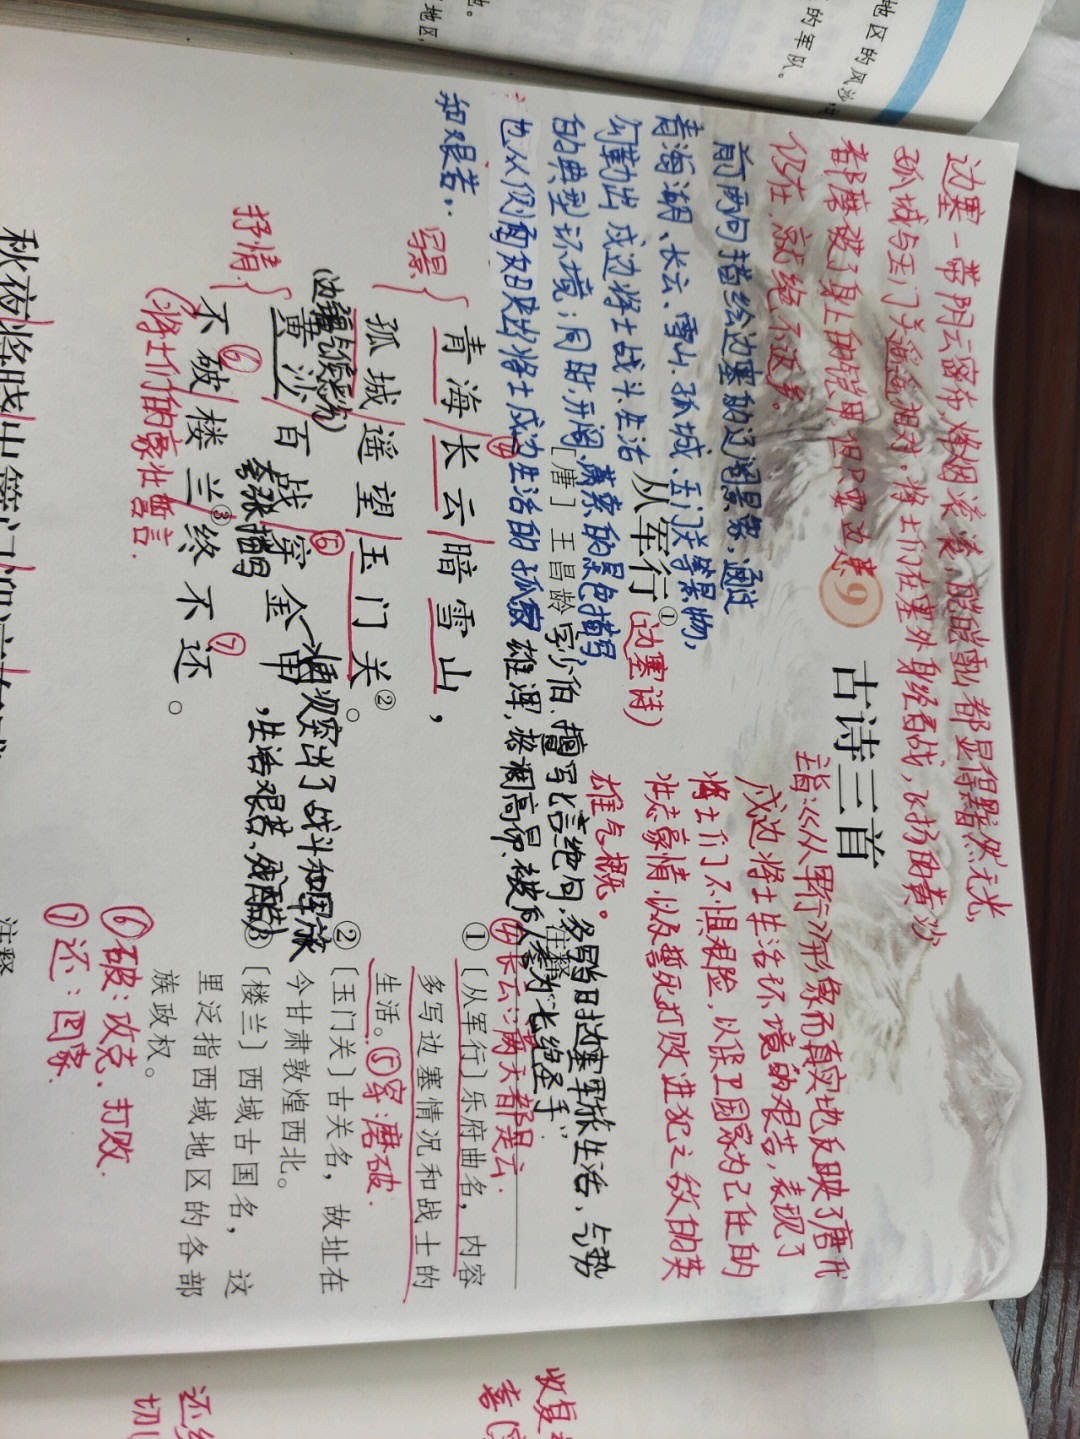 地区的风沙
的军队。
地。
地区,
边塞一带阴云密布,烽烟滚滚,
都显得黯然无光,
孤城与玉门关遥遥相对,将士们在塞外身经百战,飞扬的黄沙
都磨破了身上的铠甲,但只要边患
仍在,就绝不返乡。
9
古诗三首
主旨:《从军行》形象而真实地反映了唐代
戍边将士生活环境的艰苦,表现了
将士们不惧艰险,以保卫国家为己任的
壮志豪情,以及誓死打败进犯之敌的英
雄气概。
前两句描绘边塞的辽阔景象,通过
青海湖、长云、雪山、孤城、玉门关等景物,
勾勒出戍边将士战斗、生活
的典型环境;同时,开阔、萧索的景色描写
也从侧面突出将士戍边生活的孤寂
和艰苦。
从军行①(边塞诗)
[唐]王昌龄
字少伯、擅写七言绝句,多写当时边塞军旅生活,气势
雄浑,格调高昂,被后人誉为“七绝圣手”
写景
青海/长云/暗雪山,
④
孤城/遥望/玉门关②。
抒情
(边疆上的风光)
黄沙/百战/穿金甲,
⑤
夸张描写
→情况突出了战斗和军旅
生活艰苦、残酷
不破楼兰③终不还。
⑥
⑦
(将士们的豪壮誓言.
注释
④长云:满天都是云.
①〔从军行〕乐府曲名,内容
多写边塞情况和战士的
生活。
⑤穿:磨破.
②〔玉门关〕古关名,故址在
今甘肃敦煌西北。
③〔楼兰〕西域古国名,这
里泛指西域地区的各部
族政权。
⑥破:攻克.打败.
⑦还:回家.
秋夜/将晓/出篱门/迎凉
注释
收复
喜
还
切